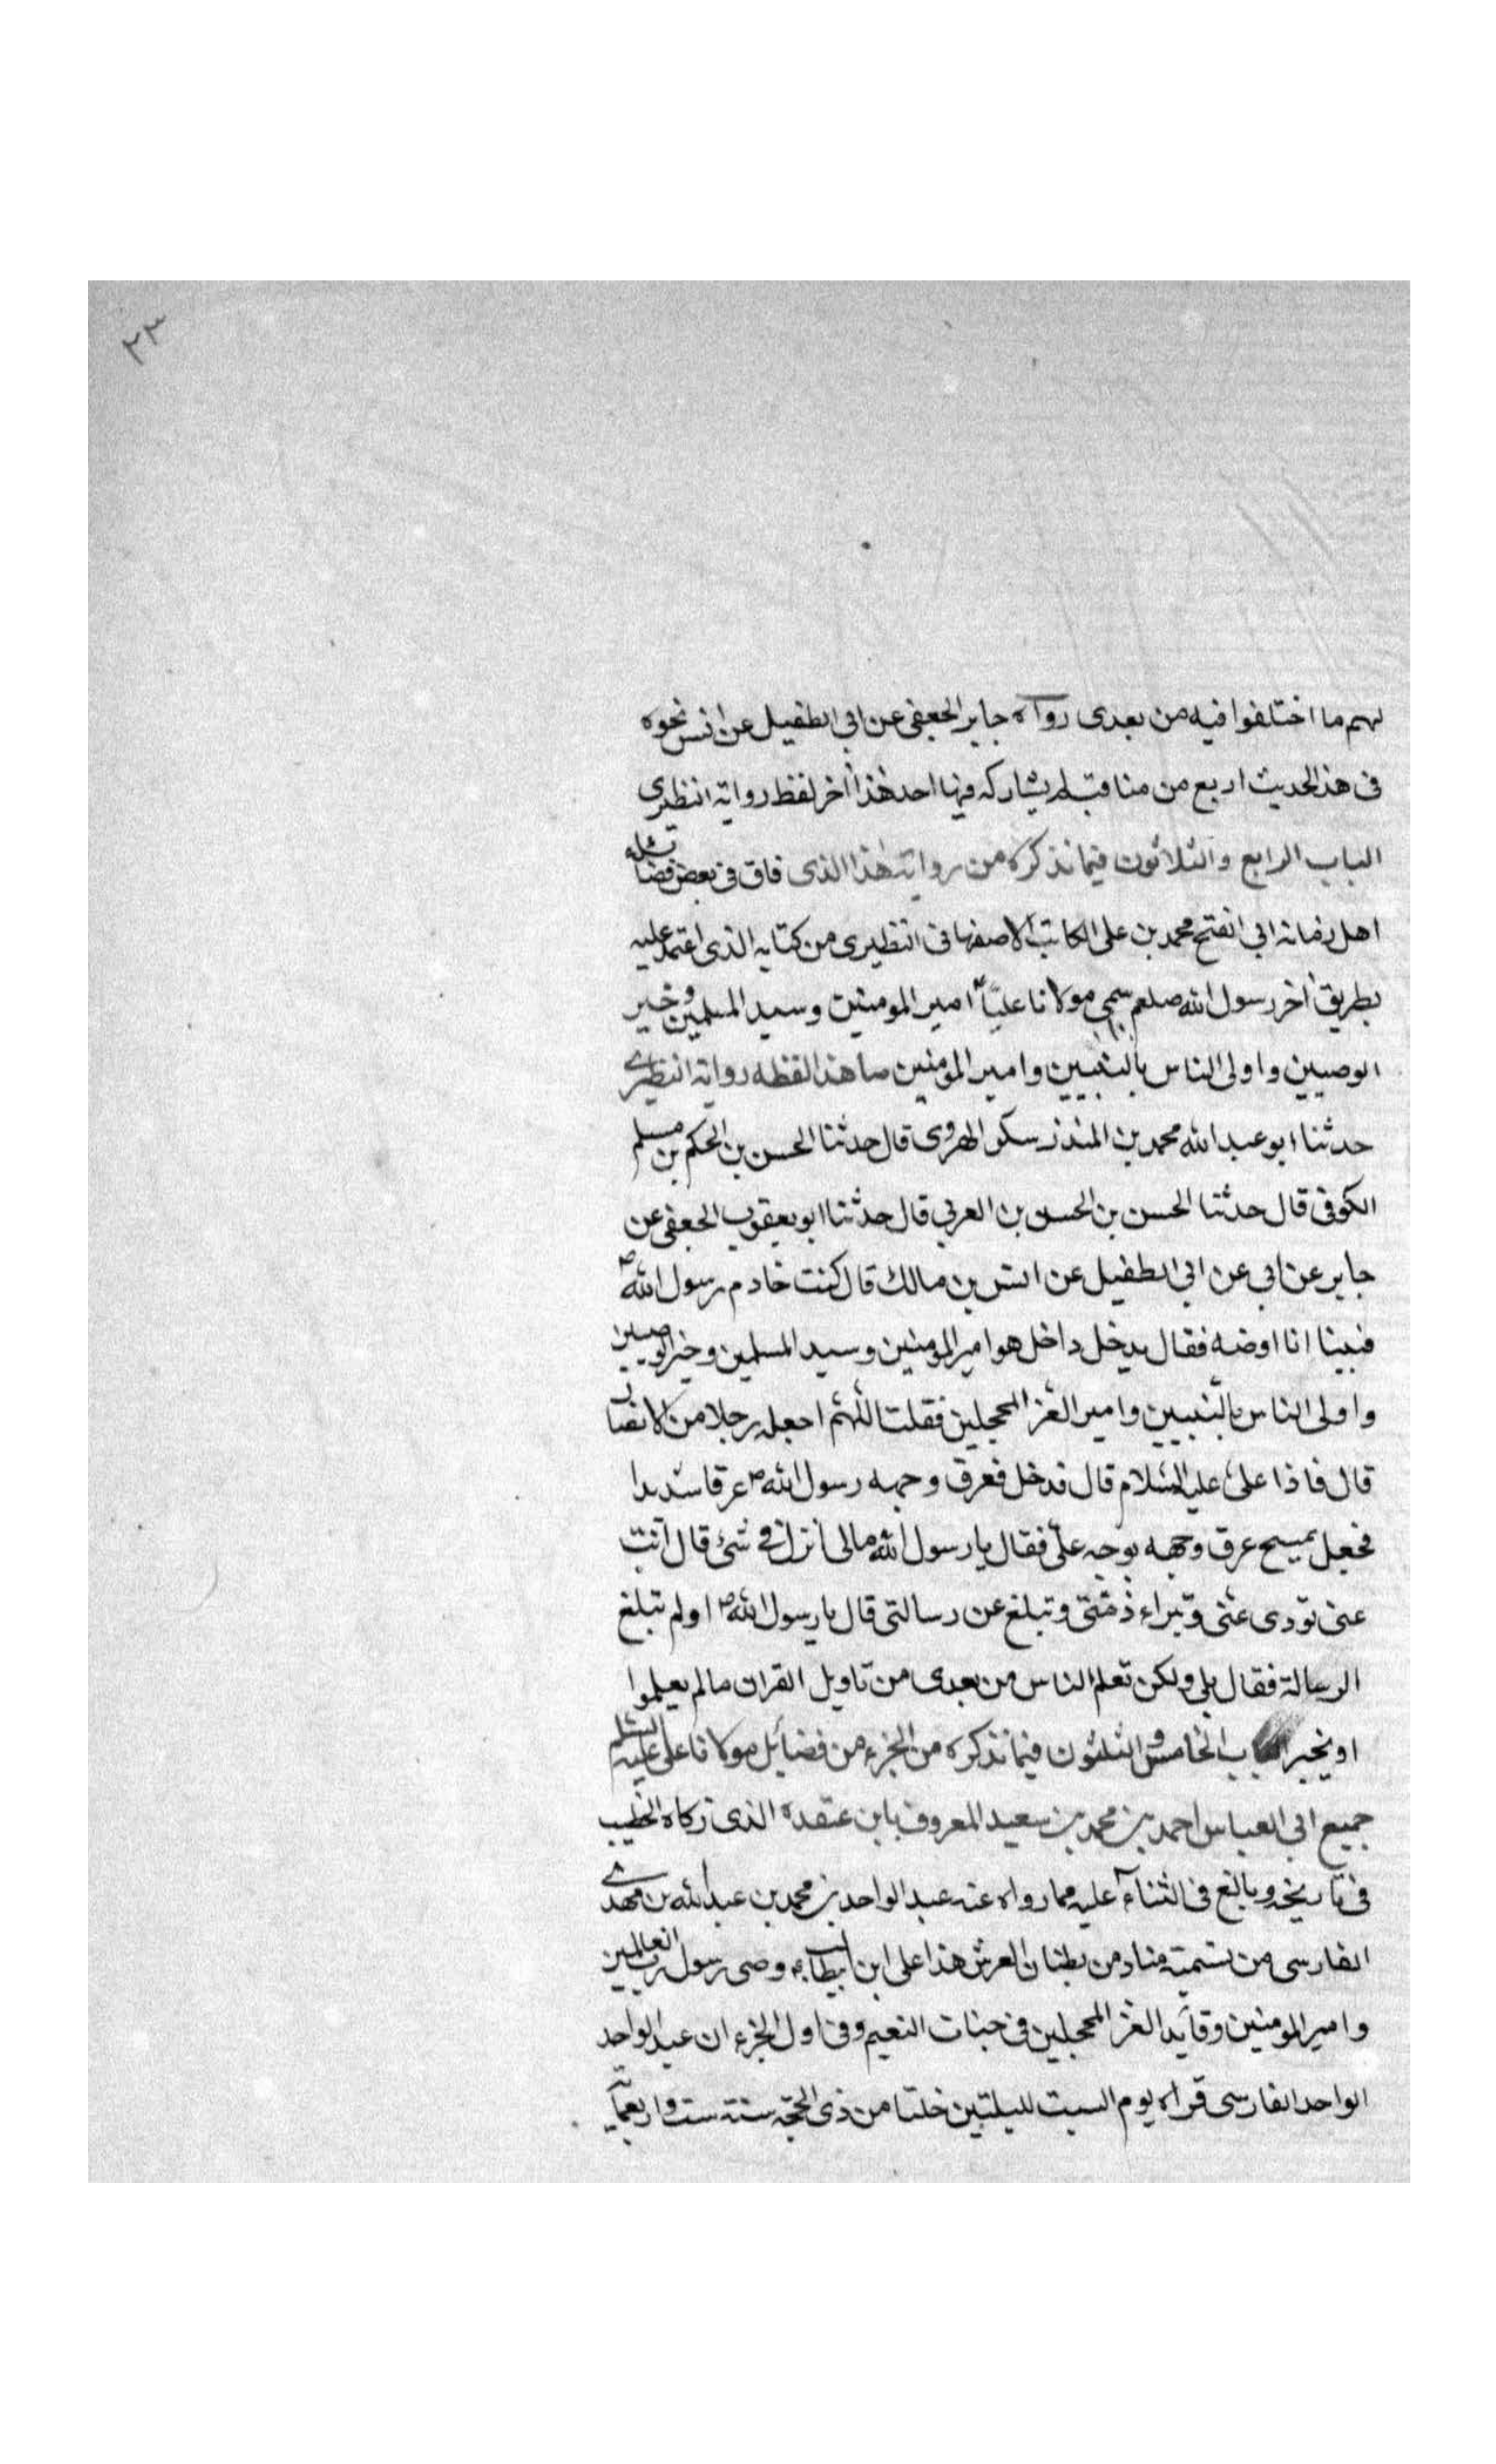 ٢٣
لهم ما اختلفوا فيه من بعدى رواه جابر الجعفى عن ابى الطفيل عن انس نحوه
فى هذ الحديث اربع من مناقبه لم يشاركه فيها احد هذا اخر لفظ رواية النظيرى
الباب الرابع والثلاثون فيما نذكره من رواية هذا الذى فاق فى بعض فضائله
اهل زمانه ابى الفتح محمد بن على الكاتب الاصفهانى النظيرى من كتابه الذى اعتمد عليه
بطريق اخر رسول الله صلعم سمى مولانا عليّا امير المومنين وسيد المسلمين وخير
الوصيين واولى الناس بالنبيين وامير المؤمنين ما هذا لفظه رواية النظيرى
حدثنا ابو عبد الله محمد بن المنذر سكر الهروى قال حدثنا الحسن بن الحكم بن مسلم
الكوفى قال حدثنا الحسن بن الحسن بن العربى قال حدثنا ابو يعقوب الجعفى عن
جابر عن ابى عن ابى الطفيل عن انس بن مالك قال كنت خادم رسول الله ص
فبينا انا اوضه فقال يدخل داخل هو امير المومنين وسيد المسلمين وخير الوصيين
واولى الناس بالنبيين وامير الغر المحجلين فقلت اللهم اجعله رجلا من الانصار
قال فاذا على عليه السلام قال فدخل فعرق وجهه رسول الله ص عرقا شديدا
فجعل يمسح عرق وجهه بوجه علىّ فقال يا رسول الله مالى انزل فى شئ قال انت
عنى تودى عنى وتبراء ذمتى وتبلغ عن رسالتى قال يا رسول الله ص اولم تبلغ
الرسالة فقال بلى ولكن تعلم الناس من بعدى من تاويل القران مالم يعلموا
او يخبر الباب الخامس والثلثون فيما نذكره من الجزء من فضائل مولانا على عليه السلم
جميع ابى العباس احمد بن محمد بن سعيد المعروف بابن عقدة الذى زكاه الخطيب
فى تاريخه وبالغ فى الثناء عليه مما رواه عنه عبد الواحد بن محمد بن عبد الله بن مهدى
الفارسى من تسمية مناد من بطنان العرش هذا على ابن ابيطالب وصى رسول رب العالمين
وامير المومنين وقايد الغر المحجلين فى جنات النعيم وفى اول الجزء ان عبد الواحد
الواحد الفارسى قراه يوم السبت لليلتين خلتا من ذى الحجة سنة ست واربعمائة